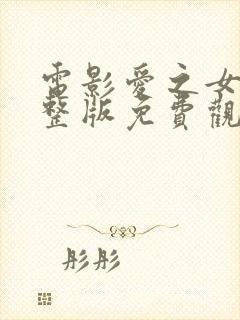 電影愛之女
整版免費觀
彤彤